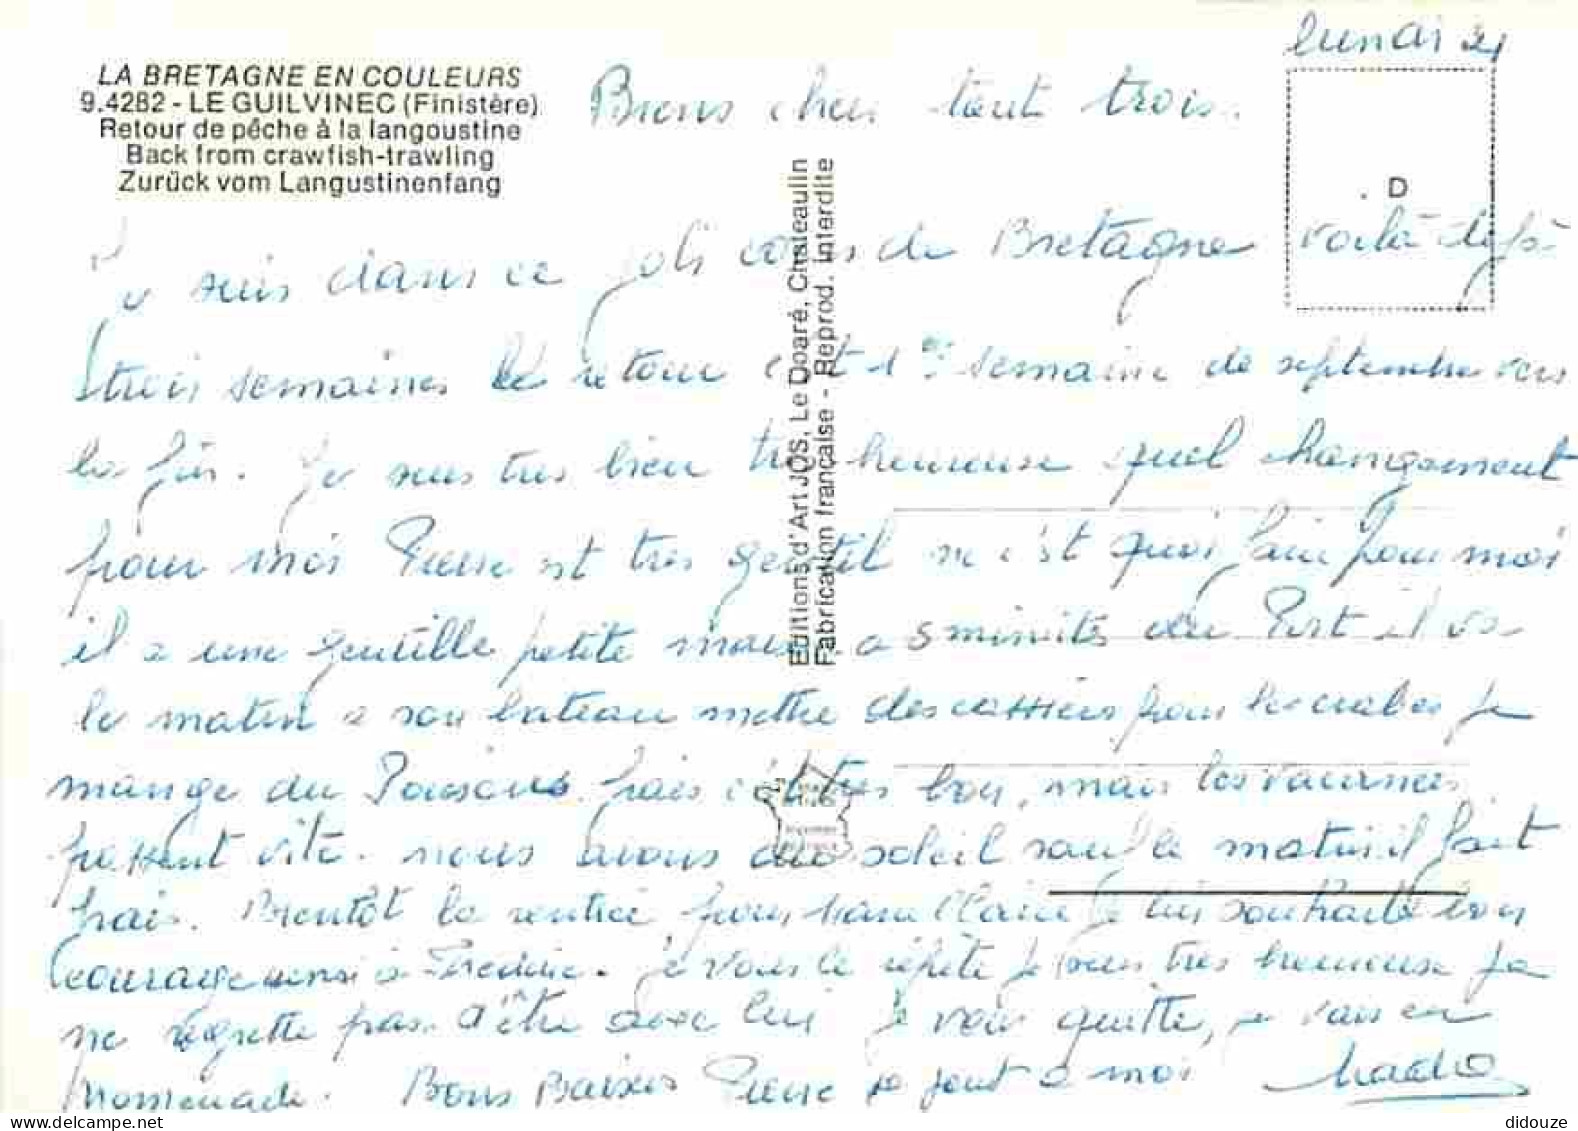 lundi 21
LA BRETAGNE EN COULEURS
9.4282 - LE GUILVINEC (Finistère)
Retour de pêche à la langoustine
Back from crawfish-trawling
Zurück vom Langustinenfang
Biens cher tout trois.
D
Editions d'Art JOS, Le Doaré, Chateaulin
Fabrication française - Reprod. interdite
Je suis dans ce joli coins de Bretagne voilà déjà
trois semaines le retour est 1er semaine de septembre vers
la fin. Je suis tres bien tres heureuse quel changement
pour moi Pierre est tres gentil faire pour moi
il a une gentille petite maison a 5 minites du Port il va
le matin a son bateau mettre des cassiers pour les crabes je
mange du Poissons frais c'est tres bon, mais les vacances
passent vite. nous avons du soleil sauf le matin il fait
frais. Bientôt la rentrée pour Claire je lui souhaite bon
courage ainsi a Frederic. je vous le répète je suis tres heureuse je
ne regrette pas d'être avec lui je vous quitte, je vais en
Promenade. Bons Baisers Pierre se joint a moi
didouze